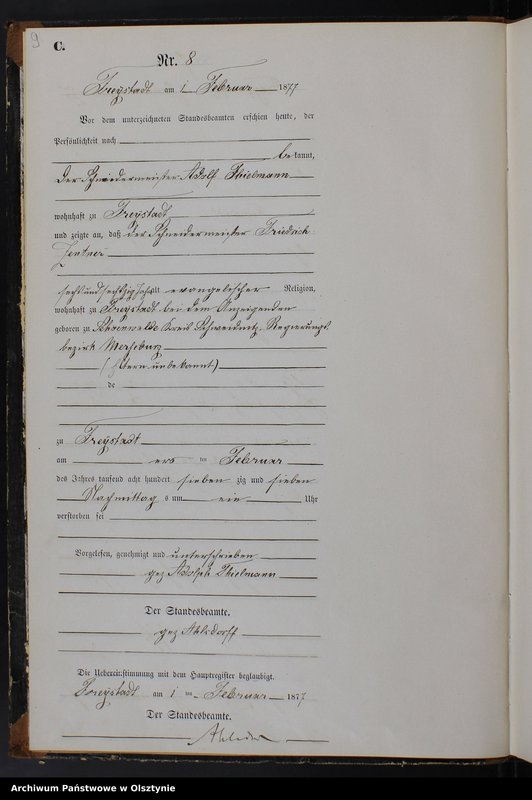 9
C.
Nr. 8
Freystadt am 1 Februar 1877
Vor dem unterzeichneten Standesbeamten erschien heute, der
Persönlichkeit nach
bekannt,
der Schneidermeister Adolf Thielmann
wohnhaft zu Freystadt
und zeigte an, daß der Schneidermeister Friedrich
Zentner
sechsundsechszig Jahre alt evangelischer Religion,
wohnhaft zu Freystadt bei dem Anzeigenden
geboren zu Kreis Schweidnitz Regierungs
bezirk Merseburg
(Eltern unbekannt)
de
zu Freystadt
am ersten Februar
des Jahres tausend acht hundert siebenzig und sieben
Nachmittags um ein Uhr
verstorben sei
Vorgelesen, genehmigt und unterschrieben
gez Adolph Thielmann
Der Standesbeamte.
gez Ahlsdorff
Die Uebereinstimmung mit dem Hauptregister beglaubigt.
Freystadt am 1 ten Februar 1877
Der Standesbeamte.
Archiwum Państwowe w Olsztynie